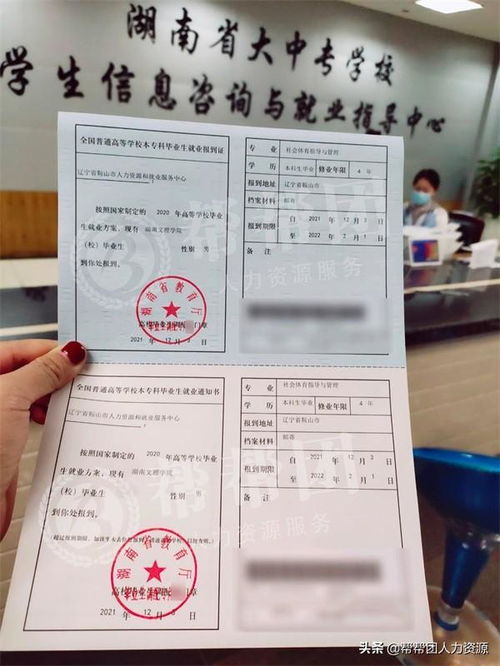 湖南省大中专学校
学生信息咨询与就业指导中心
全国普通高等学校本专科毕业生就业报到证
辽宁省鞍山市人力资源和就业服务中心
按照国家制定的 2020 年高等学校毕业
生就业方案，现有 湖南文理学院
(校)毕业生 性别 男
到你处报到。
湖南省教育厅
2021 12 3
专业 社会体育指导与管理
学历 本科生毕业 修业年限 4 年
报到地址 辽宁省鞍山市
档案材料 邮寄
报到期限 自 2021 年 12 月 3 日
至 2022 年 2 月 1 日
备注
帮帮团
人力资源服务
全国普通高等学校本专科毕业生就业通知书
辽宁省鞍山市人力资源和就业服务中心
按照国家制定的 2020 年高等学校毕业
生就业方案，现有 湖南文理学院
(校)毕业生 性别 男
到你处报到。
湖南省教育厅
2021 12 3
专业 社会体育指导与管理
学历 本科生毕业 修业年限 4 年
报到地址 辽宁省鞍山市
档案材料 邮寄
报到期限 自 2021 年 12 月 3 日
至 2022 年 2 月 1 日
备注
帮帮团
人力资源服务
头条 @帮帮团人力资源